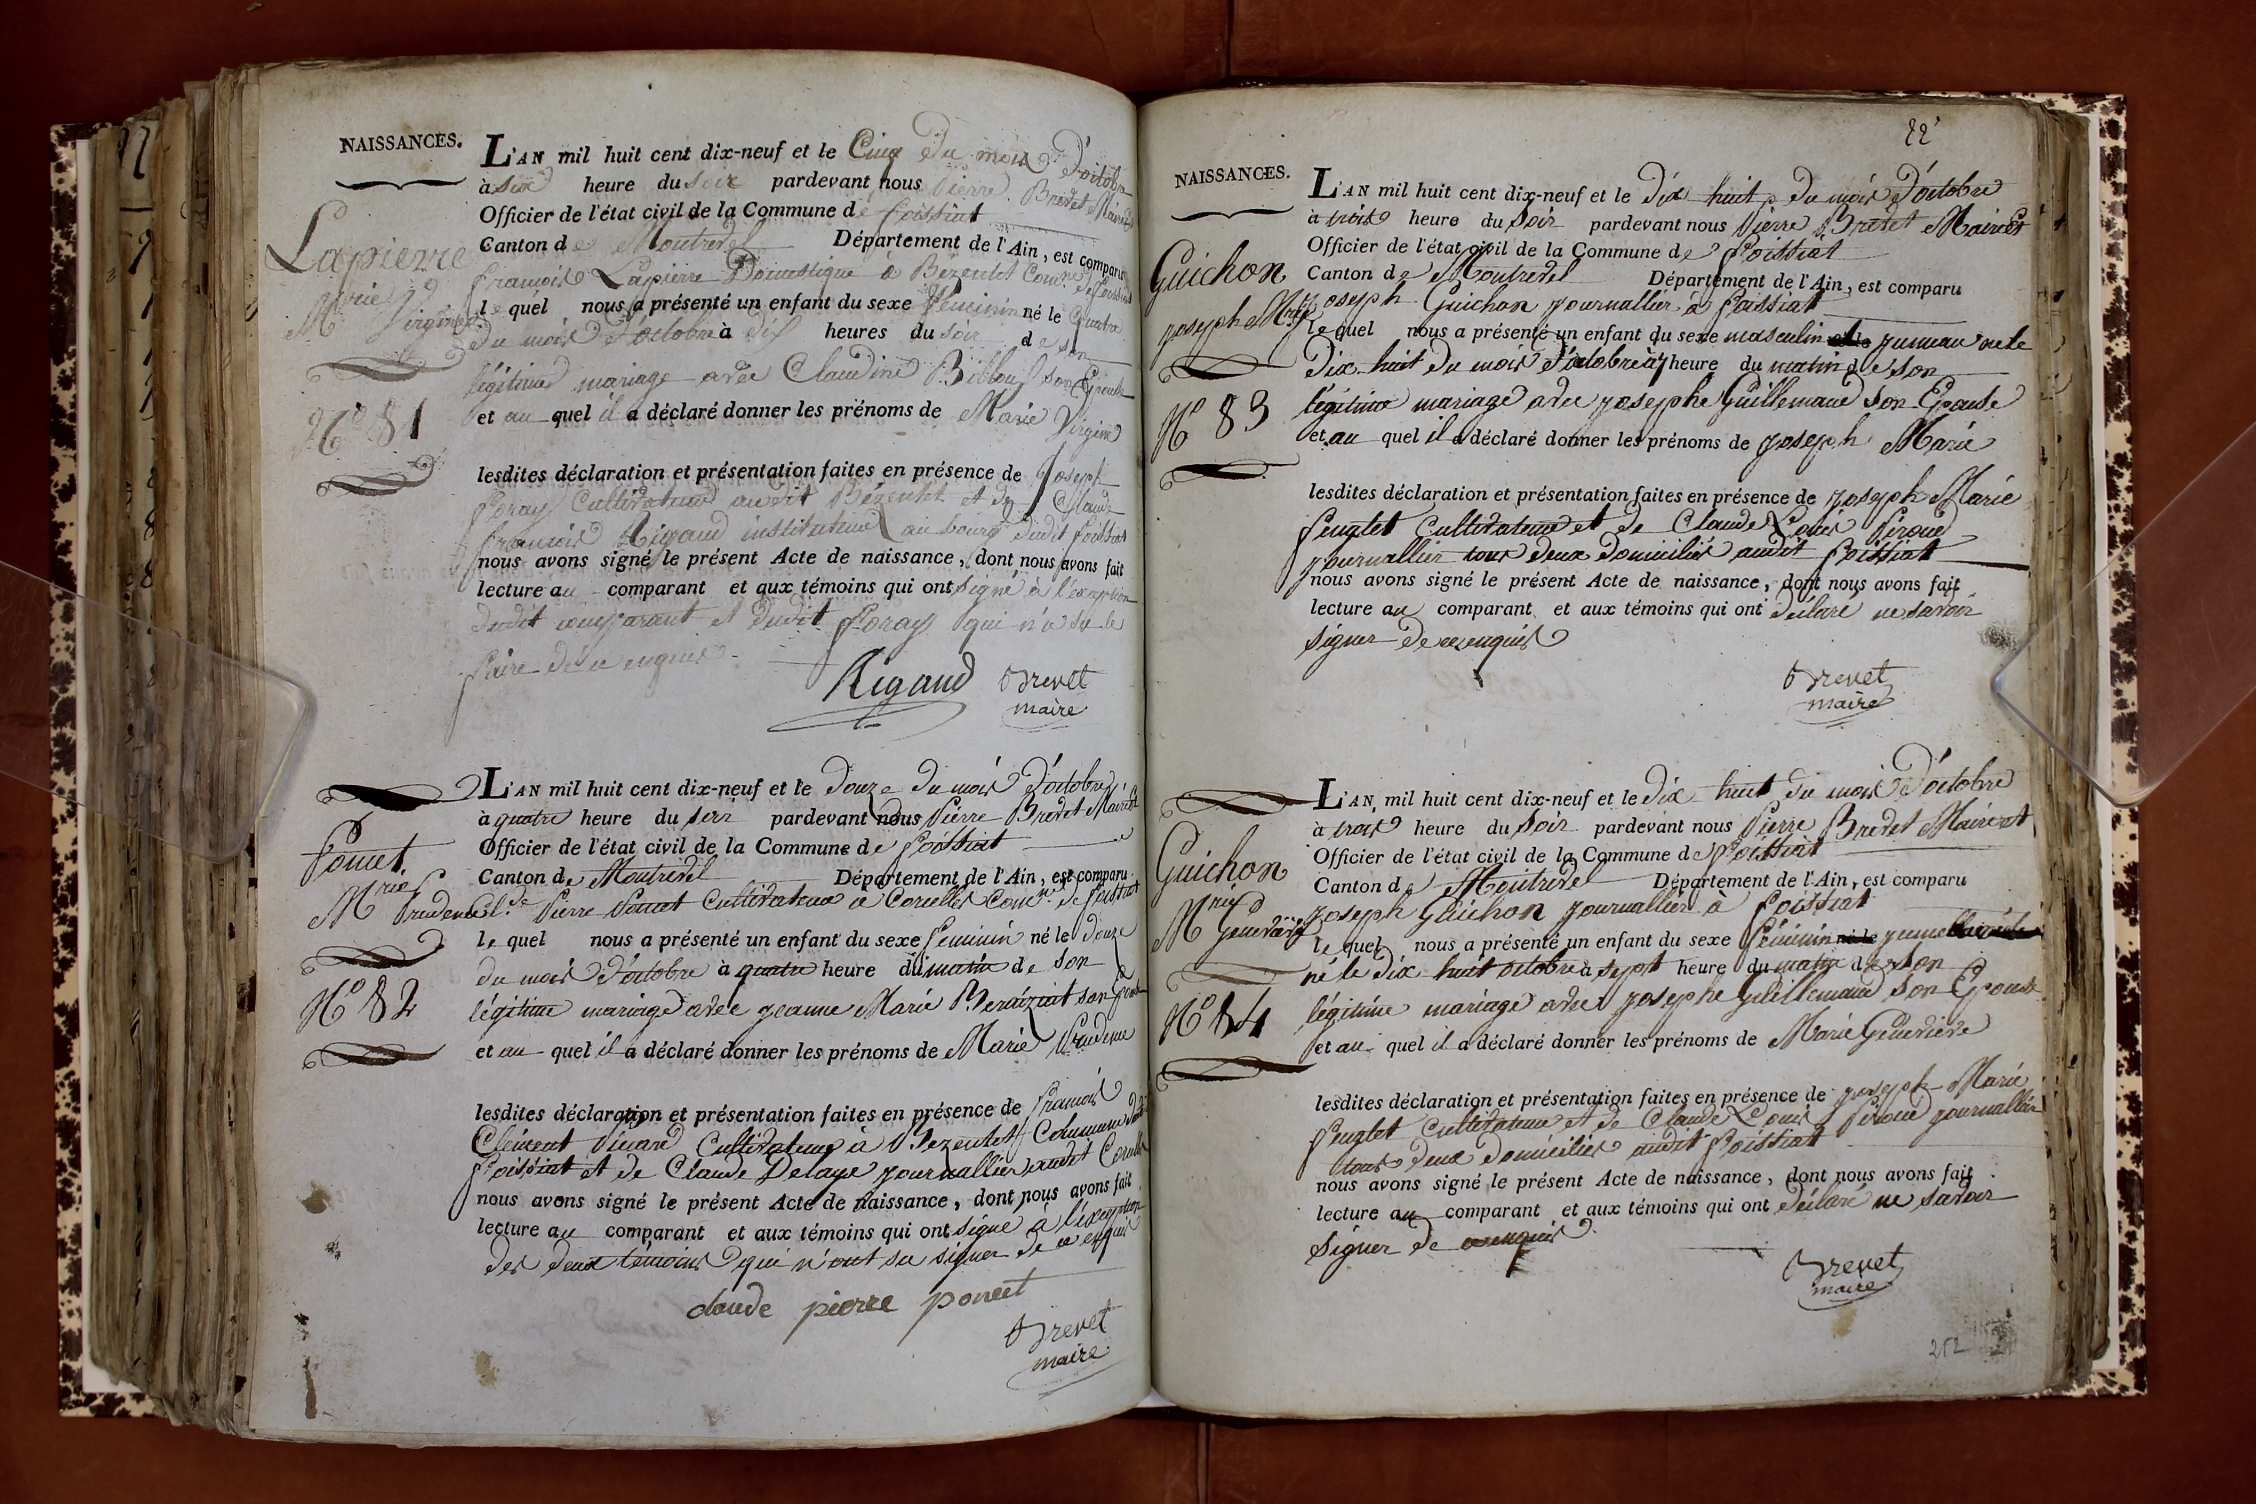 NAISSANCES.
L'AN mil huit cent dix-neuf et le Cinq du mois d'octobre
à six heure du soir pardevant nous Pierre Brevet Maire et
Officier de l'état civil de la Commune de foissiat
Canton de Montrevel Département de l'Ain, est comparu
françois Lapierre Domestique à Bézentet Comne de foissiat
le quel nous a présenté un enfant du sexe féminin né le quatre
du mois d'octobre à dix heures du soir de son
légitime mariage avec Claudine son Epouse
et au quel il a déclaré donner les prénoms de Marie Virginie
lesdites déclaration et présentation faites en présence de Joseph
foray Cultivateur audit Bézentet et de Claude
françois Rigaud instituteur au bourg dudit foissiat
nous avons signé le présent Acte de naissance, dont nous avons fait
lecture au comparant et aux témoins qui ont signé à l'exception
dudit comparant et dudit foray qui n'a su le
faire de ce enquis
Rigaud Brevet
maire
Lapierre
Mrie Virginie
No 81
L'AN mil huit cent dix-neuf et le douze du mois d'octobre
à quatre heure du soir pardevant nous Pierre Brevet Maire et
Officier de l'état civil de la Commune de foissiat
Canton de Montrevel Département de l'Ain, est comparu
Clde Pierre Poncet Cultivateur à Corcelles Comne de foissiat
le quel nous a présenté un enfant du sexe feminin né le douze
du mois d'octobre à quatre heure du matin de son
légitime mariage avec jeanne Marie Beraiziat son Epouse
et au quel il a déclaré donner les prénoms de Marie Prudence
lesdites déclaration et présentation faites en présence de françois
Clément Cultivateur à Bezentet Commune dudit
foissiat et de Claude Delaye journallier audit Corcelles
nous avons signé le présent Acte de naissance, dont nous avons fait
lecture au comparant et aux témoins qui ont signé à l'exception
des deux témoins qui n'ont su signer de ce enquis
claude pierre poncet
Brevet
maire
Poncet
Mrie Prudence
No 82
22
NAISSANCES.
L'AN mil huit cent dix-neuf et le dix huit du mois d'octobre
à trois heure du soir pardevant nous Pierre Brevet Maire et
Officier de l'état civil de la Commune de foissiat
Canton de Montrevel Département de l'Ain, est comparu
joseph Guichon journallier à foissiat
le quel nous a présenté un enfant du sexe masculin jumeau né le
dix huit du mois d'octobre à 7 heure du matin de son
légitime mariage avec josephe Guillemaud son Epouse
et au quel il a déclaré donner les prénoms de joseph Marie
lesdites déclaration et présentation faites en présence de joseph Marie
feuglet Cultivateur et de Claude Louis Piroud
journallier tous deux domiciliés audit foissiat
nous avons signé le présent Acte de naissance, dont nous avons fait
lecture au comparant et aux témoins qui ont déclaré ne savoir
signer de ce enquis
Brevet
maire
Guichon
joseph Mrie
No 83
L'AN mil huit cent dix-neuf et le dix huit du mois d'octobre
à trois heure du soir pardevant nous Pierre Brevet Maire et
Officier de l'état civil de la Commune de foissiat
Canton de Montrevel Département de l'Ain, est comparu
joseph Guichon journallier à foissiat
le quel nous a présenté un enfant du sexe féminin né le jumelle
né le dix huit octobre à sept heure du matin de son
légitime mariage avec josephe Guillemaud son Epouse
et au quel il a déclaré donner les prénoms de Marie Geneviève
lesdites déclaration et présentation faites en présence de joseph Marie
feuglet Cultivateur et de Claude Louis Piroud journallier
tous deux domiciliés audit foissiat
nous avons signé le présent Acte de naissance, dont nous avons fait
lecture au comparant et aux témoins qui ont déclaré ne savoir
signer de ce enquis
Brevet
maire
Guichon
Mrie Geneviève
No 84
252